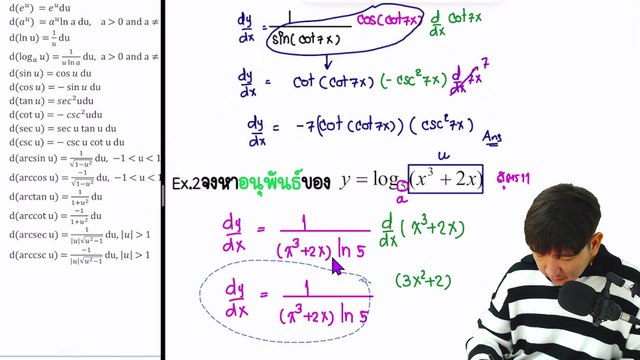 d(eᵘ) = eᵘdu
d(aᵘ) = aᵘ ln a du, a > 0 and a ≠
d(ln u) = 1/u du
d(logₐ u) = 1/(u ln a) du, a > 0 and a ≠
d(sin u) = cos u du
d(cos u) = − sin u du
d(tan u) = sec²u du
d(cot u) = − csc²u du
d(sec u) = sec u tan u du
d(csc u) = − csc u cot u du
d(arcsin u) = 1/√(1−u²) du, −1 < u < 1
d(arccos u) = −1/√(1−u²) du, −1 < u < 1
d(arctan u) = 1/(1+u²) du
d(arccot u) = −1/(1+u²) du
d(arcsec u) = 1/(|u|√(u²−1)) du, |u| > 1
d(arccsc u) = −1/(|u|√(u²−1)) du, |u| > 1
dy/dx = 1/sin(cot7x) cos(cot7x) d/dx cot7x
dy/dx = cot(cot7x) (−csc²7x) d/dx 7x 7
dy/dx = −7(cot(cot7x)) (csc²7x) Ans
Ex.2 จงหาอนุพันธ์ของ y = log₅(x³ + 2x) u a สูตร 11
dy/dx = 1/((x³+2x) ln 5) d/dx (x³+2x)
dy/dx = 1/((x³+2x) ln 5) (3x²+2)